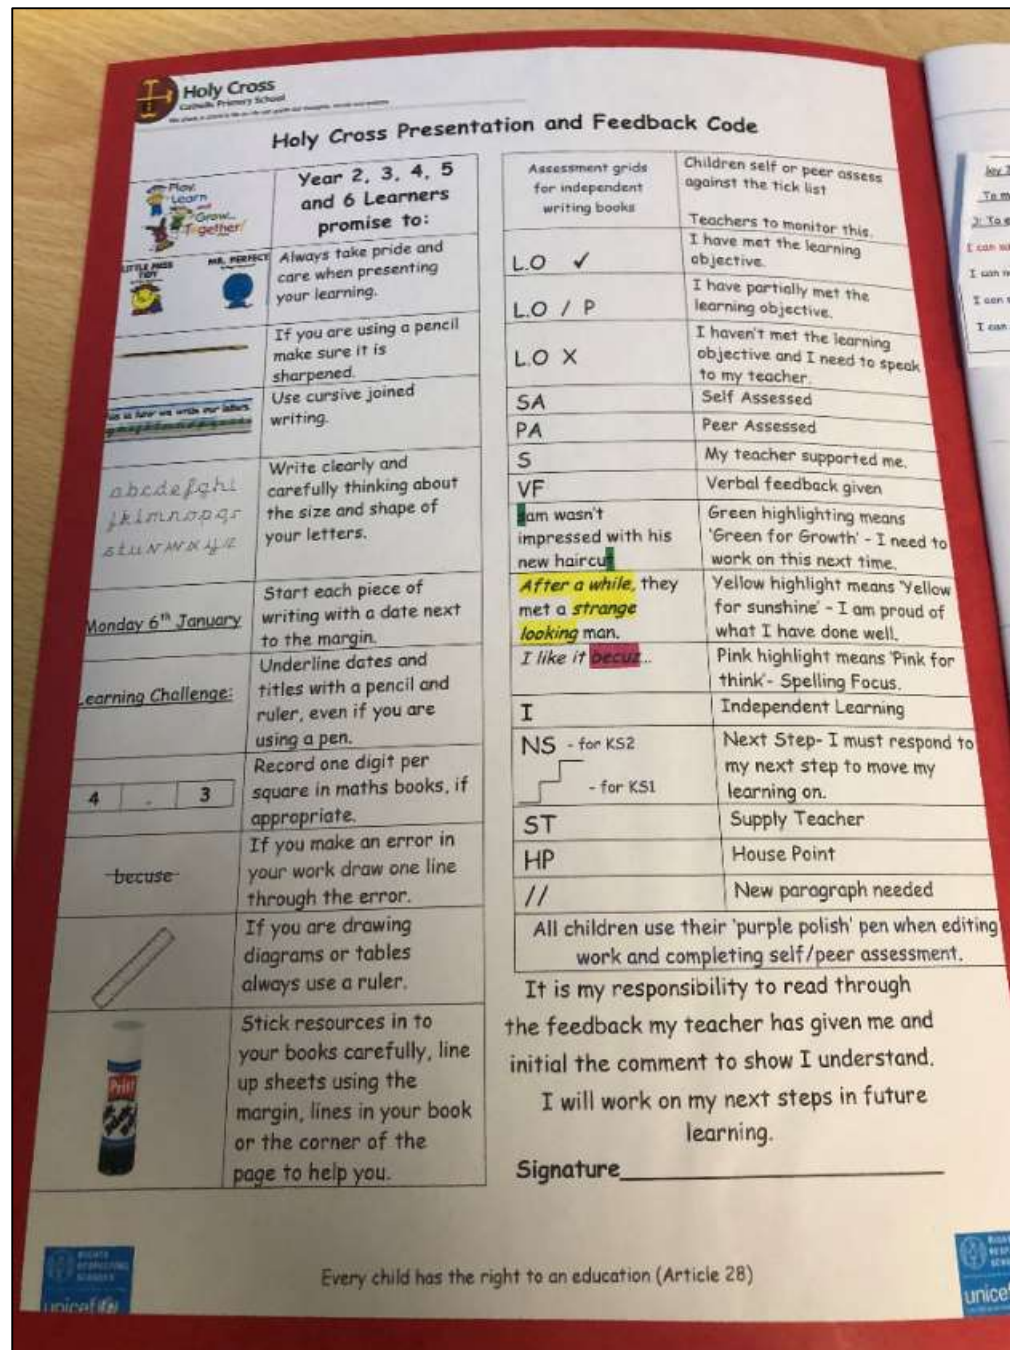 Holy Cross
Catholic Primary School
Holy Cross Presentation and Feedback Code
Play,
Learn
and
Grow...
Together!
Year 2, 3, 4, 5
and 6 Learners
promise to:
LITTLE MISS
TIDY
MR. PERFECT
Always take pride and
care when presenting
your learning.
If you are using a pencil
make sure it is
sharpened.
is how we write our letters.
Use cursive joined
writing.
abcdefghi
jklmnopqr
stuvwxyz
Write clearly and
carefully thinking about
the size and shape of
your letters.
Monday 6th January
Start each piece of
writing with a date next
to the margin.
Learning Challenge:
Underline dates and
titles with a pencil and
ruler, even if you are
using a pen.
4 . 3
Record one digit per
square in maths books, if
appropriate.
becuse
If you make an error in
your work draw one line
through the error.
If you are drawing
diagrams or tables
always use a ruler.
Pritt
Stick resources in to
your books carefully, line
up sheets using the
margin, lines in your book
or the corner of the
page to help you.
Assessment grids
for independent
writing books
Children self or peer assess
against the tick list
Teachers to monitor this.
L.O ✓
I have met the learning
objective.
L.O / P
I have partially met the
learning objective.
L.O X
I haven't met the learning
objective and I need to speak
to my teacher.
SA
Self Assessed
PA
Peer Assessed
S
My teacher supported me.
VF
Verbal feedback given
sam wasn't
impressed with his
new haircut
Green highlighting means
'Green for Growth' - I need to
work on this next time.
After a while, they
met a strange
looking man.
Yellow highlight means 'Yellow
for sunshine' - I am proud of
what I have done well.
I like it becuz...
Pink highlight means 'Pink for
think'- Spelling Focus.
I
Independent Learning
NS - for KS2
- for KS1
Next Step- I must respond to
my next step to move my
learning on.
ST
Supply Teacher
HP
House Point
//
New paragraph needed
All children use their 'purple polish' pen when editing
work and completing self/peer assessment.
It is my responsibility to read through
the feedback my teacher has given me and
initial the comment to show I understand.
I will work on my next steps in future
learning.
Signature
RIGHTS
RESPECTING
SCHOOLS
unicef
Every child has the right to an education (Article 28)
unice
I can
I can
I can
I can